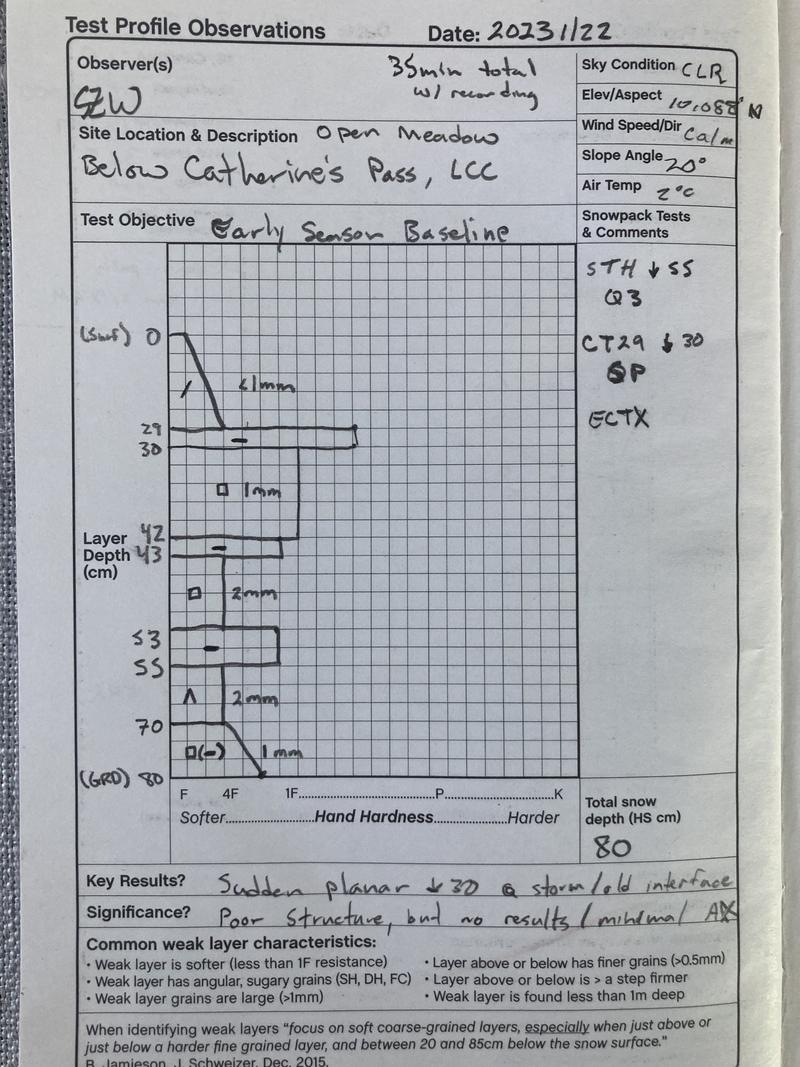 Test Profile Observations Date: 20231/22
Observer(s) 35min total
SZW w/ recording
Sky Condition CLR
Elev/Aspect 10,088' N
Site Location & Description Open Meadow
Below Catherine's Pass, LCC
Wind Speed/Dir Calm
Slope Angle 20°
Air Temp 2°C
Test Objective Early Season Baseline
Snowpack Tests
& Comments
STH ↓ 55
Q3
(Surf) 0
CT29 ↓ 30
SP
/ <1mm
ECTX
29
-
30
□ 1mm
Layer 42
Depth 43 -
(cm)
□ 2mm
53
-
55
Λ 2mm
70
□(-) 1mm
(GRD) 80
F 4F 1F P K
Softer Hand Hardness Harder
Total snow
depth (HS cm)
80
Key Results? Sudden planar ↓ 30 @ storm/old interface
Significance? Poor Structure, but no results/minimal
Common weak layer characteristics:
• Weak layer is softer (less than 1F resistance)
• Weak layer has angular, sugary grains (SH, DH, FC)
• Weak layer grains are large (>1mm)
• Layer above or below has finer grains (>0.5mm)
• Layer above or below is > a step firmer
• Weak layer is found less than 1m deep
When identifying weak layers "focus on soft coarse-grained layers, especially when just above or
just below a harder fine grained layer, and between 20 and 85cm below the snow surface."
B. Jamieson, J. Schweizer, Dec. 2015.